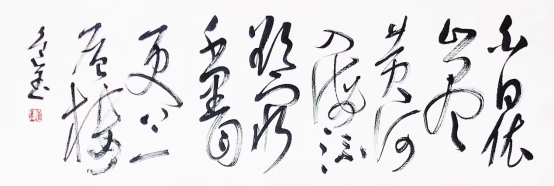 白日依
山尽
黄河
入海流
欲穷
千里目
更上
一层楼